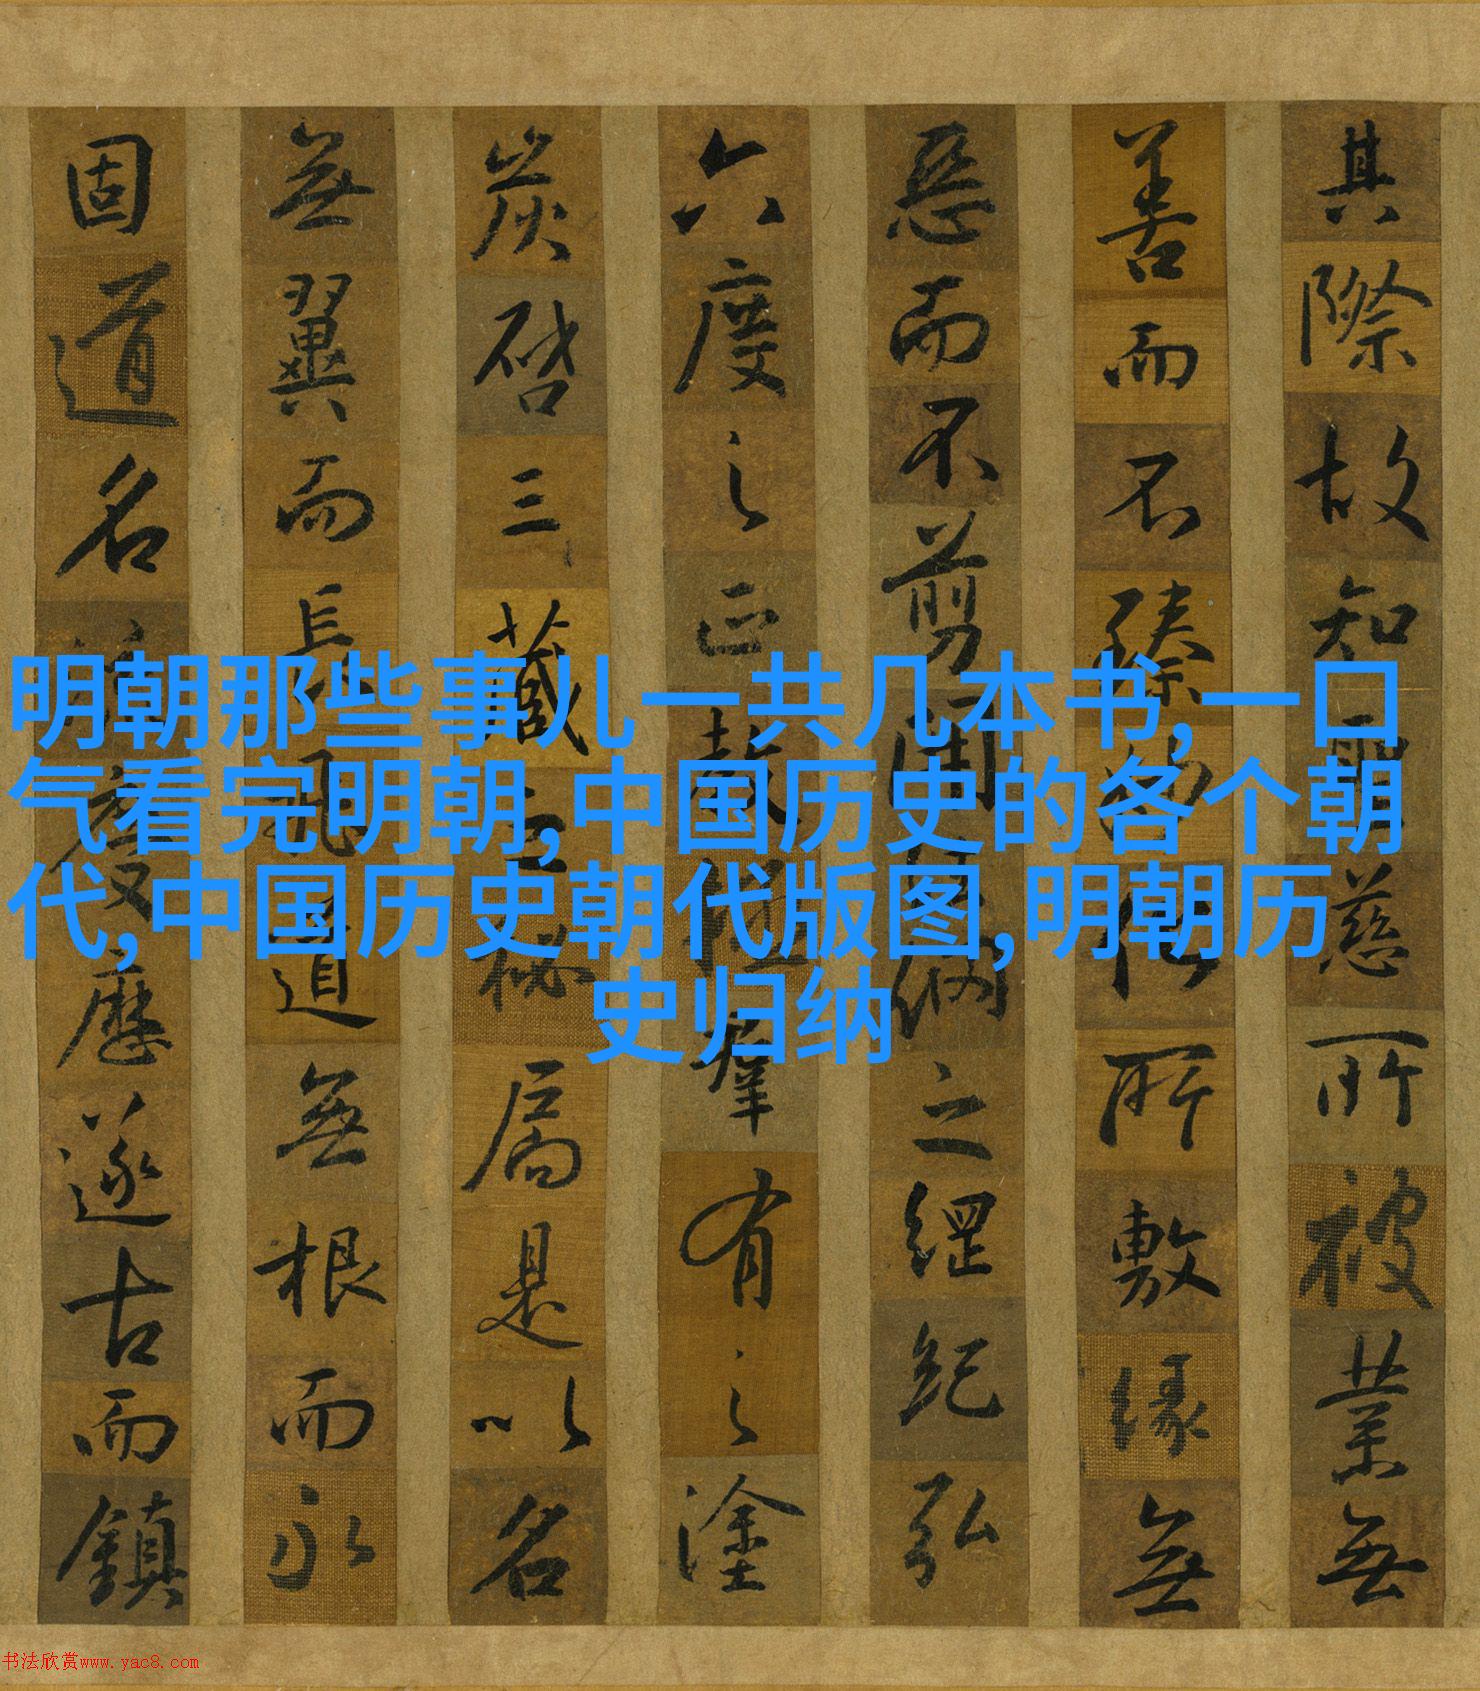 明朝那些事儿一共几本书,一口
气看完明朝,中国历史的各个朝
代,中国历史朝代版图,明朝历
史归纳
其際故知聖慈所被業無
善而不臻妙化所敷緣無
惡而不剪開法網之綱紀弘
六度之正教拯羣有之塗
炭啓三藏之秘扃是以名
無翼而長飛道無根而永
固道名流慶歷遂古而鎮
书法欣赏www.yac8.com